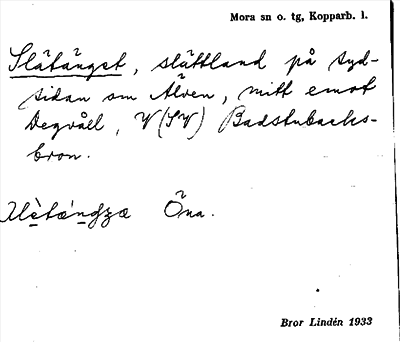 Mora sn o. tg, Kopparb. l.
Slätänget, slåttland på syd-
sidan om Älven, mitt emot
Degvåll, V(SV) Badstubacks-
bron.
Öna.
Bror Lindén 1933